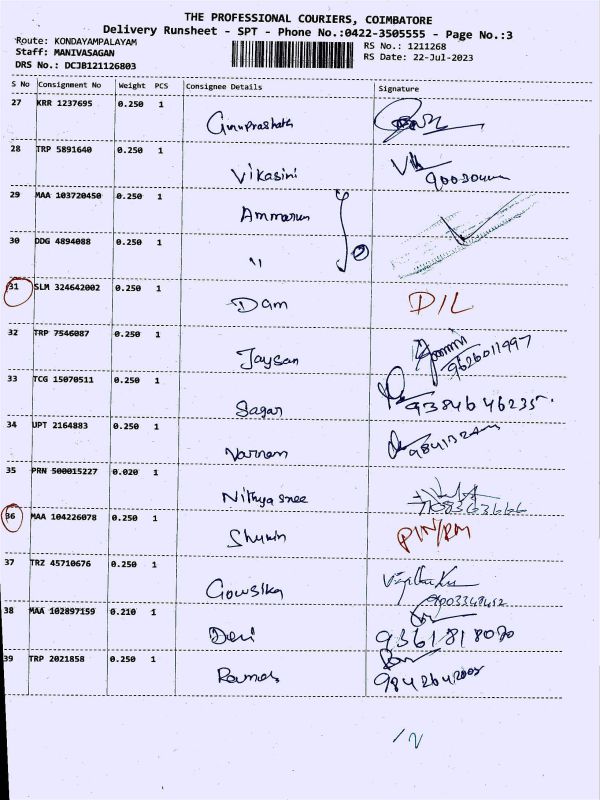 THE PROFESSIONAL COURIERS, COIMBATORE
Delivery Runsheet - SPT - Phone No.:0422-3505555 - Page No.:3
Route: KONDAYAMPALAYAM
RS No.: 1211268
Staff: MANIVASAGAN
RS Date: 22-Jul-2023
DRS No.: DCJB121126803
S No Consignment No Weight PCS Consignee Details Signature
27 KRR 1237695 0.250 1
Guruprashath
28 TRP 5891640 0.250 1
Vikasini
29 MAA 103720450 0.250 1
30 DDG 4894088 0.250 1
"
31 SLM 324642002 0.250 1
Dam D/L
32 TRP 7546087 0.250 1
Jaysan 9626011997
33 TCG 15070511 0.250 1
Sagar 9384646235.
34 UPT 2164883 0.250 1
35 PRN 500015227 0.020 1
Nithyasree
36 MAA 104226078 0.250 1
PIN/RM
37 TRZ 45710676 0.250 1
Gowsika
38 MAA 102897159 0.210 1
Devi
39 TRP 2021858 0.250 1
Ramas